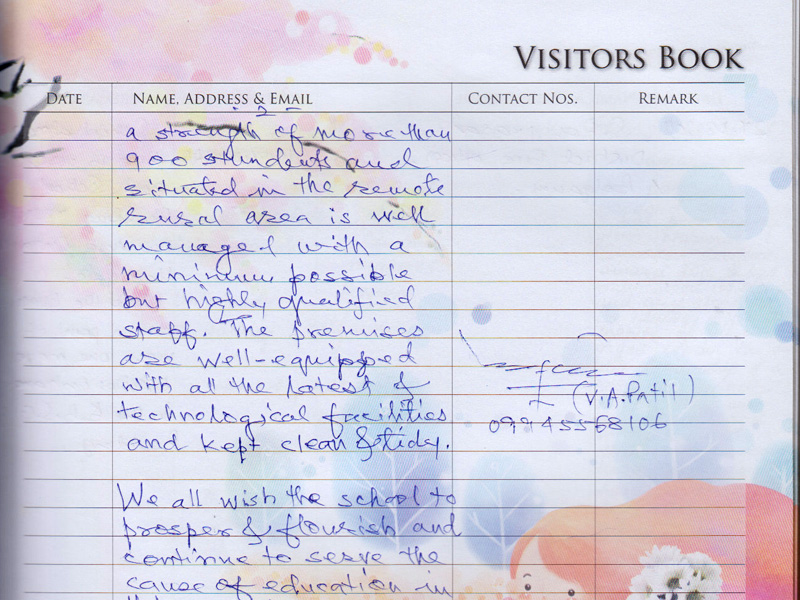 VISITORS BOOK
DATE NAME, ADDRESS & EMAIL CONTACT NOS. REMARK
2
a strength of more than
900 students and
situated in the remote
rural area is well
managed with a
minimum possible
but highly qualified
staff. The premises
are well-equipped
with all the latest &
technological facilities
and kept clean & tidy.
(V.A. Patil)
09945568106
We all wish the school to
prosper & flourish and
continue to serve the
cause of education in